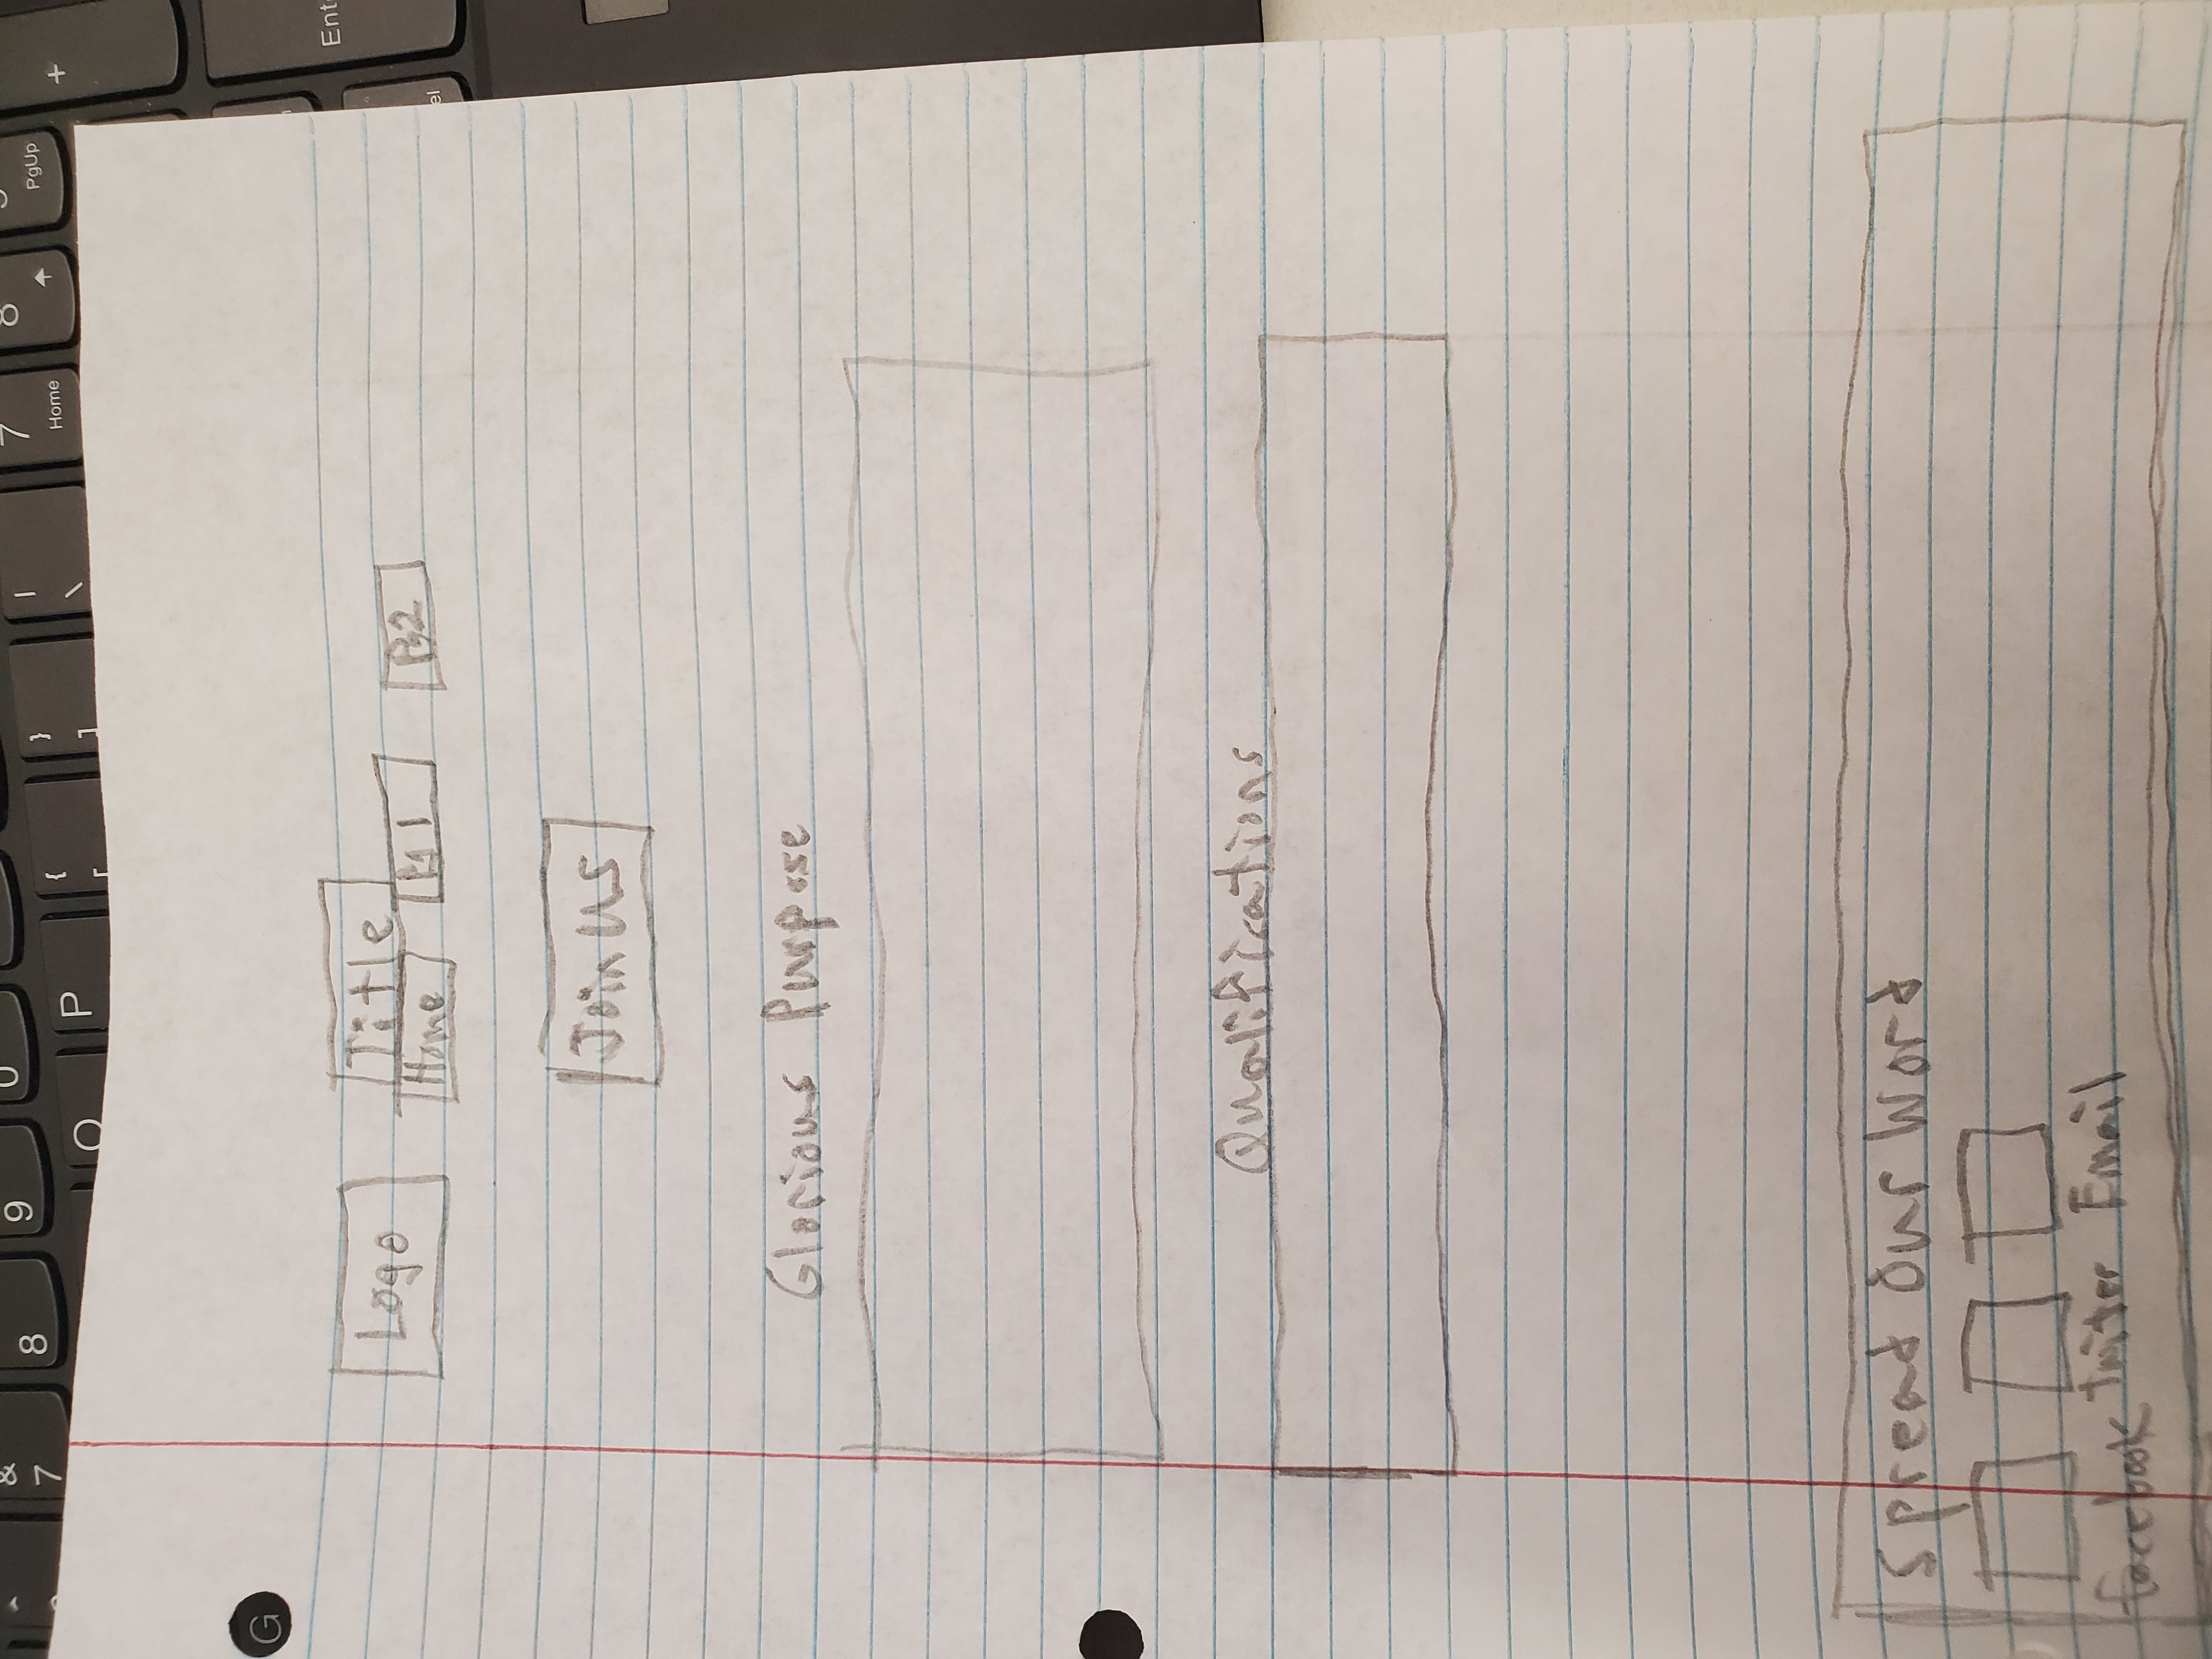 &
7
8
9
0
O
P
{
[
}
]
|
\
7
Home
8
9
PgUp
+
G
Ent
el
Logo
Title
Home
Pg 1
Pg 2
Join Us
Glorious Purpose
Qualifications
Spread Our Word
facebook twiter Email